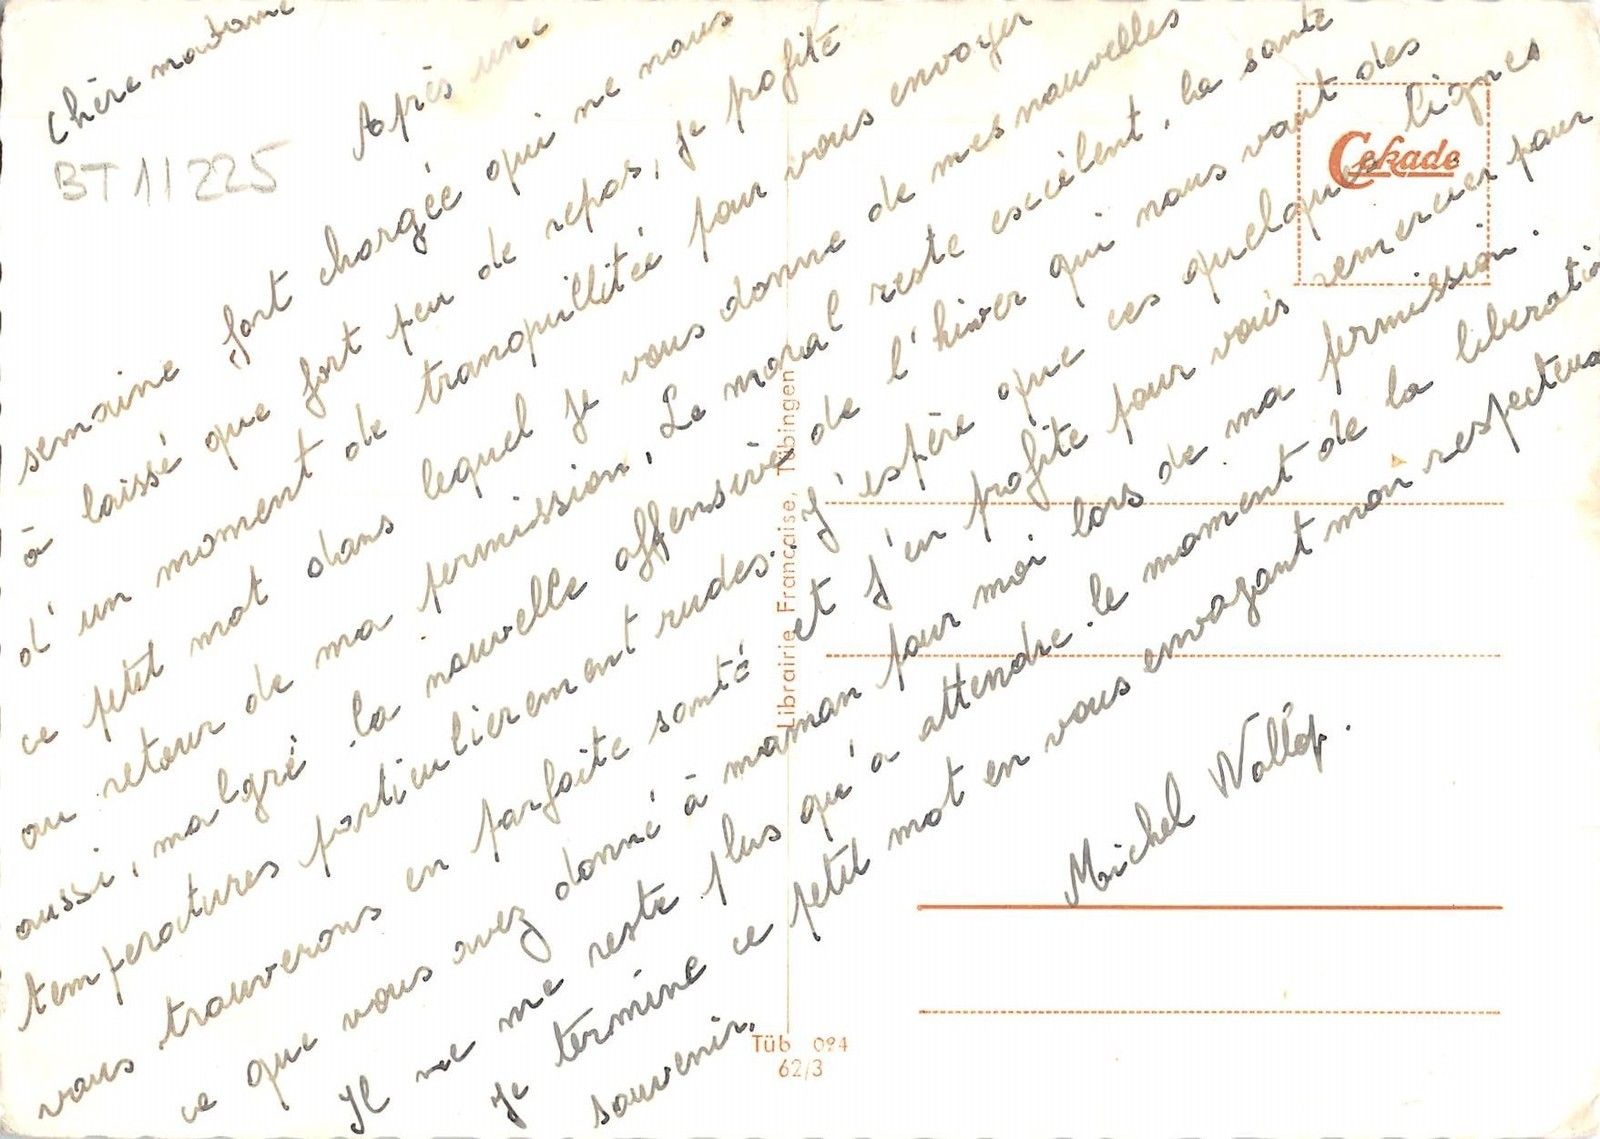 Chère madame
Après une
semaine fort chargée qui ne nous
à laissé que fort peu de repos, je profite
d'un moment de tranquillitée pour vous envoyer
ce petit mot dans lequel je vous donne de mes nouvelles
au retour de ma permission. Le moral reste excélent, la santé
aussi, malgré la nouvelle offensive de l'hiver qui nous vaut des
temperatures particulierement rudes. J'espère que ces quelques lignes
vous trouverons en parfaite santé et j'en profite pour vous remercier pour
ce que vous avez donné à maman pour moi lors de ma permission.
Il ne me reste plus qu'a attendre le moment de la liberation
Je termine ce petit mot en vous envoyant mon respectueux
souvenir.
Michel Wallép.
BT 11225
Cekade
Librairie Francaise, Tübingen
Tüb 024
62/3